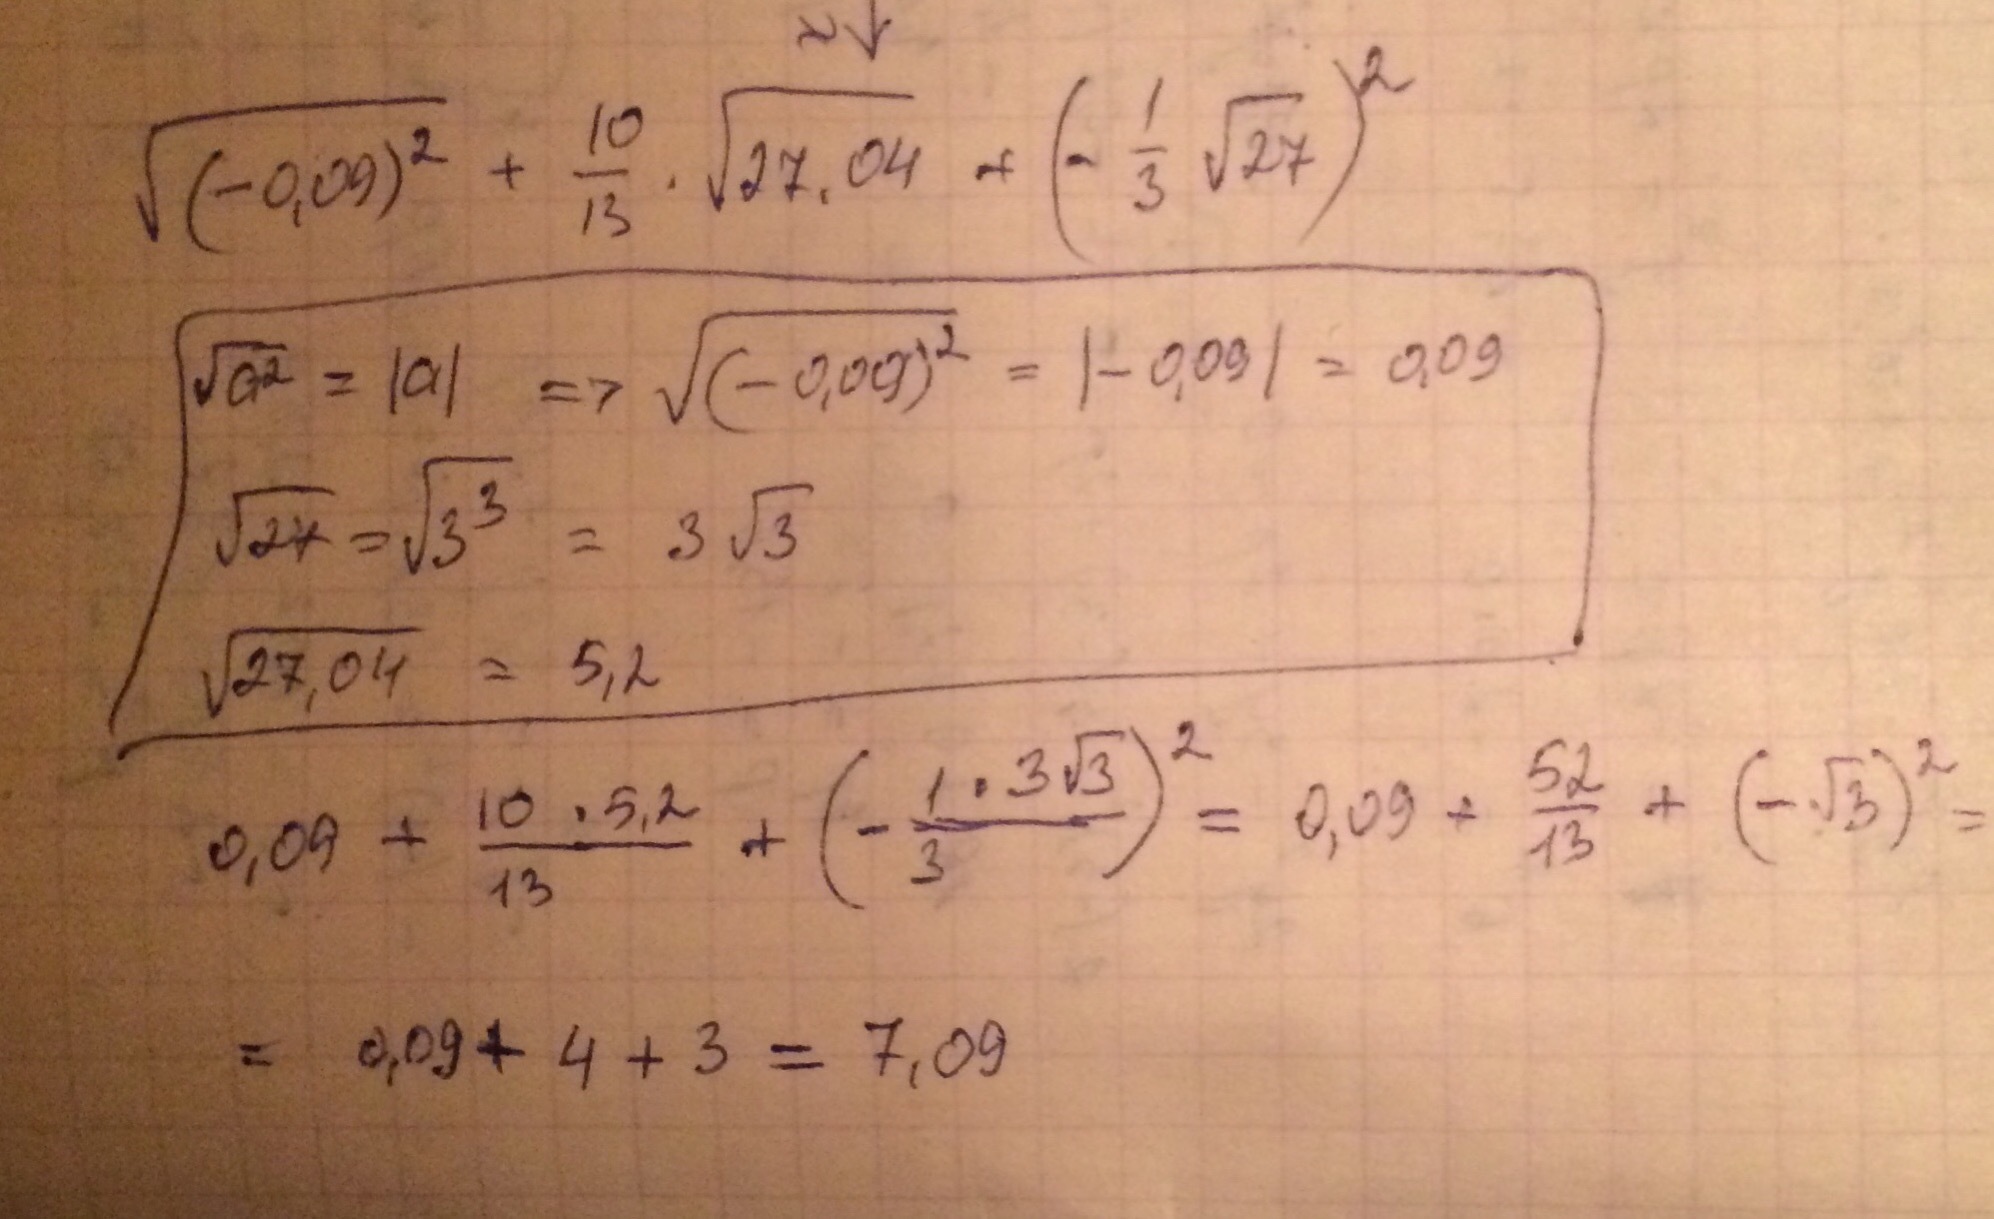 ≈↓
√(-0,09)² + 10/13 · √27,04 + (- 1/3 √27)²
√a² = |a| => √(-0,09)² = |-0,09| = 0,09
√27 = √3³ = 3√3
√27,04 = 5,2
0,09 + 10·5,2/13 + (- 1·3√3/3)² = 0,09 + 52/13 + (-√3)² =
= 0,09 + 4 + 3 = 7,09